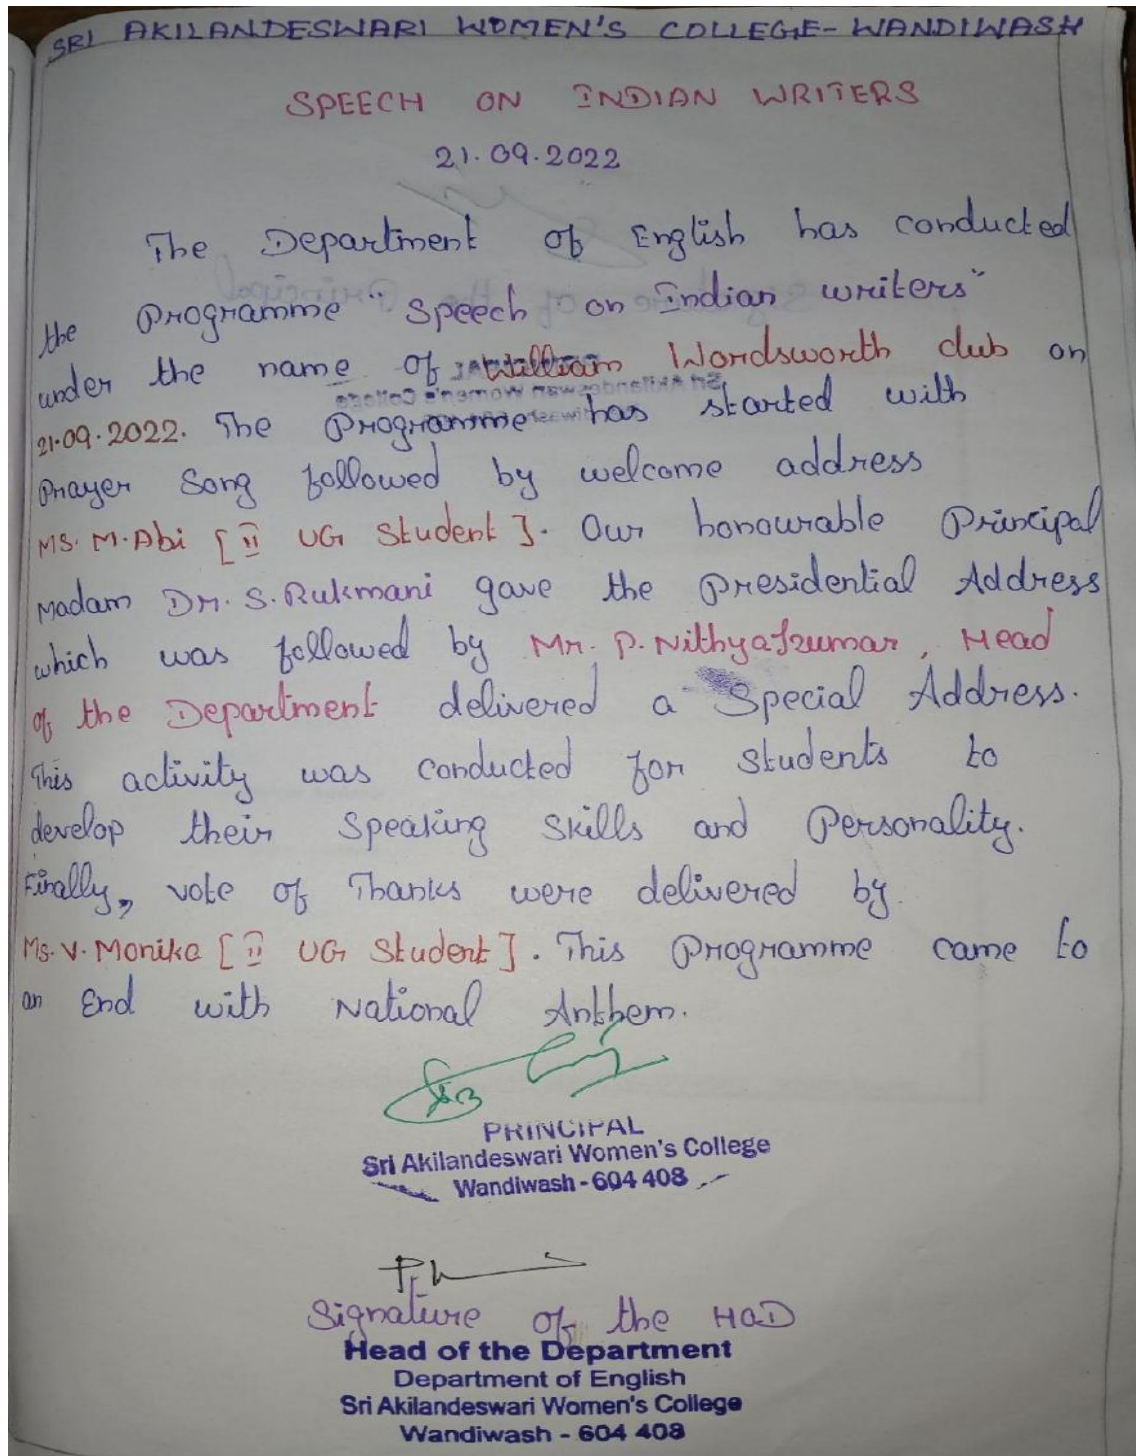 SRI AKILANDESWARI WOMEN'S COLLEGE-WANDIWASH
SPEECH ON INDIAN WRITERS
21.09.2022
The Department of English has conducted
the Programme "Speech on Indian writers"
under the name of William Wordsworth club on
21.09.2022. The Programme has started with
Prayer Song followed by welcome address
MS. M.Abi [II UG Student]. Our honourable Principal
Madam Dr. S. Rukmani gave the Presidential Address
which was followed by Mr. P. Nithyakumar, Head
of the Department delivered a Special Address.
This activity was conducted for students to
develop their Speaking Skills and Personality.
Finally, vote of Thanks were delivered by
Ms. V. Monika [II UG Student]. This Programme came to
an End with National Anthem.
PRINCIPAL
Sri Akilandeswari Women's College
Wandiwash - 604 408
Signature of the HOD
Head of the Department
Department of English
Sri Akilandeswari Women's College
Wandiwash - 604 408